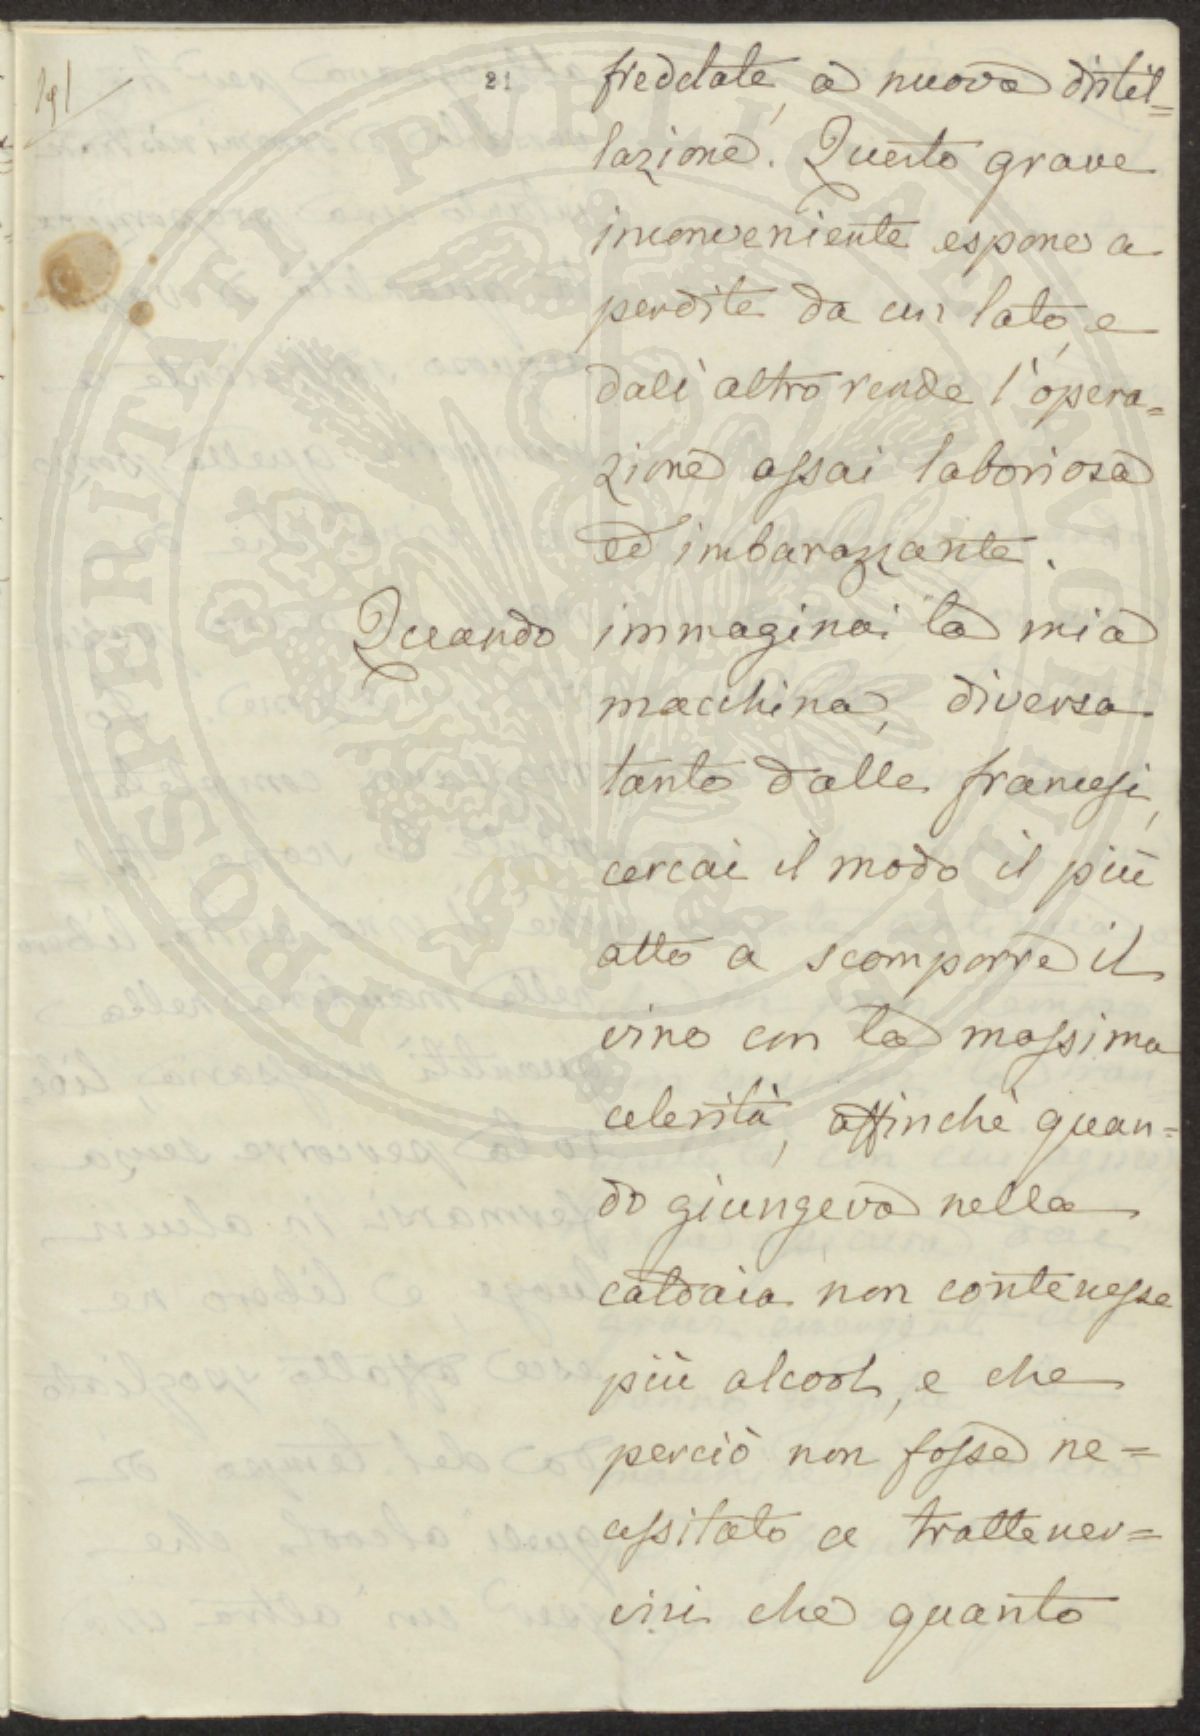 191
21
freddate, a nuova distil=
lazione. Questo grave
inconveniente espone a
perdite da un lato, e
dall'altro rende l'opera=
zione assai laboriosa
ed imbarazzante.
Quando immaginai la mia
macchina, diversa
tanto dalle francesi,
cercai il modo il più
atto a scomporre il
vino con la massima
celerità, affinchè quan=
do giungeva nella
caldaia non contenesse
più alcool, e che
perciò non fosse ne=
cessitato a trattener=
vivi che quanto
PROSPERITATI PUBLICAE AUGENDAE